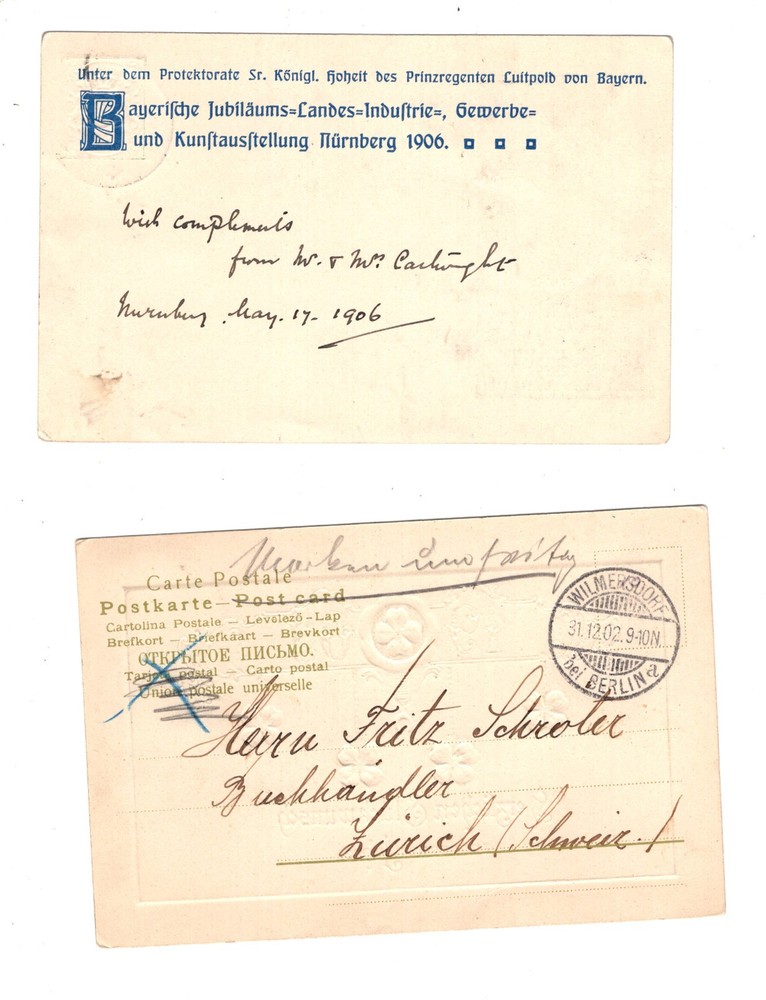 Unter dem Protektorate Sr. Königl. Hoheit des Prinzregenten Luitpold von Bayern.
Bayerische Jubiläums=Landes=Industrie=, Gewerbe=
und Kunstausstellung Nürnberg 1906.
With compliments
from Mr. & Mrs. Cartwright
Nurnburg. May. 17- 1906
Marken
Carte Postale
Postkarte — Post card
Cartolina Postale — Levelező-Lap
Brefkort — Briefkaart — Brevkort
ОТКРЫТОЕ ПИСЬМО.
Tarjeta postal — Carto postal
Union postale universelle
WILMERSDORF
31.12.02. 9-10N.
bei BERLIN 2
Herrn Fritz Schröter
Buchhändler
Zürich (Schweiz.)